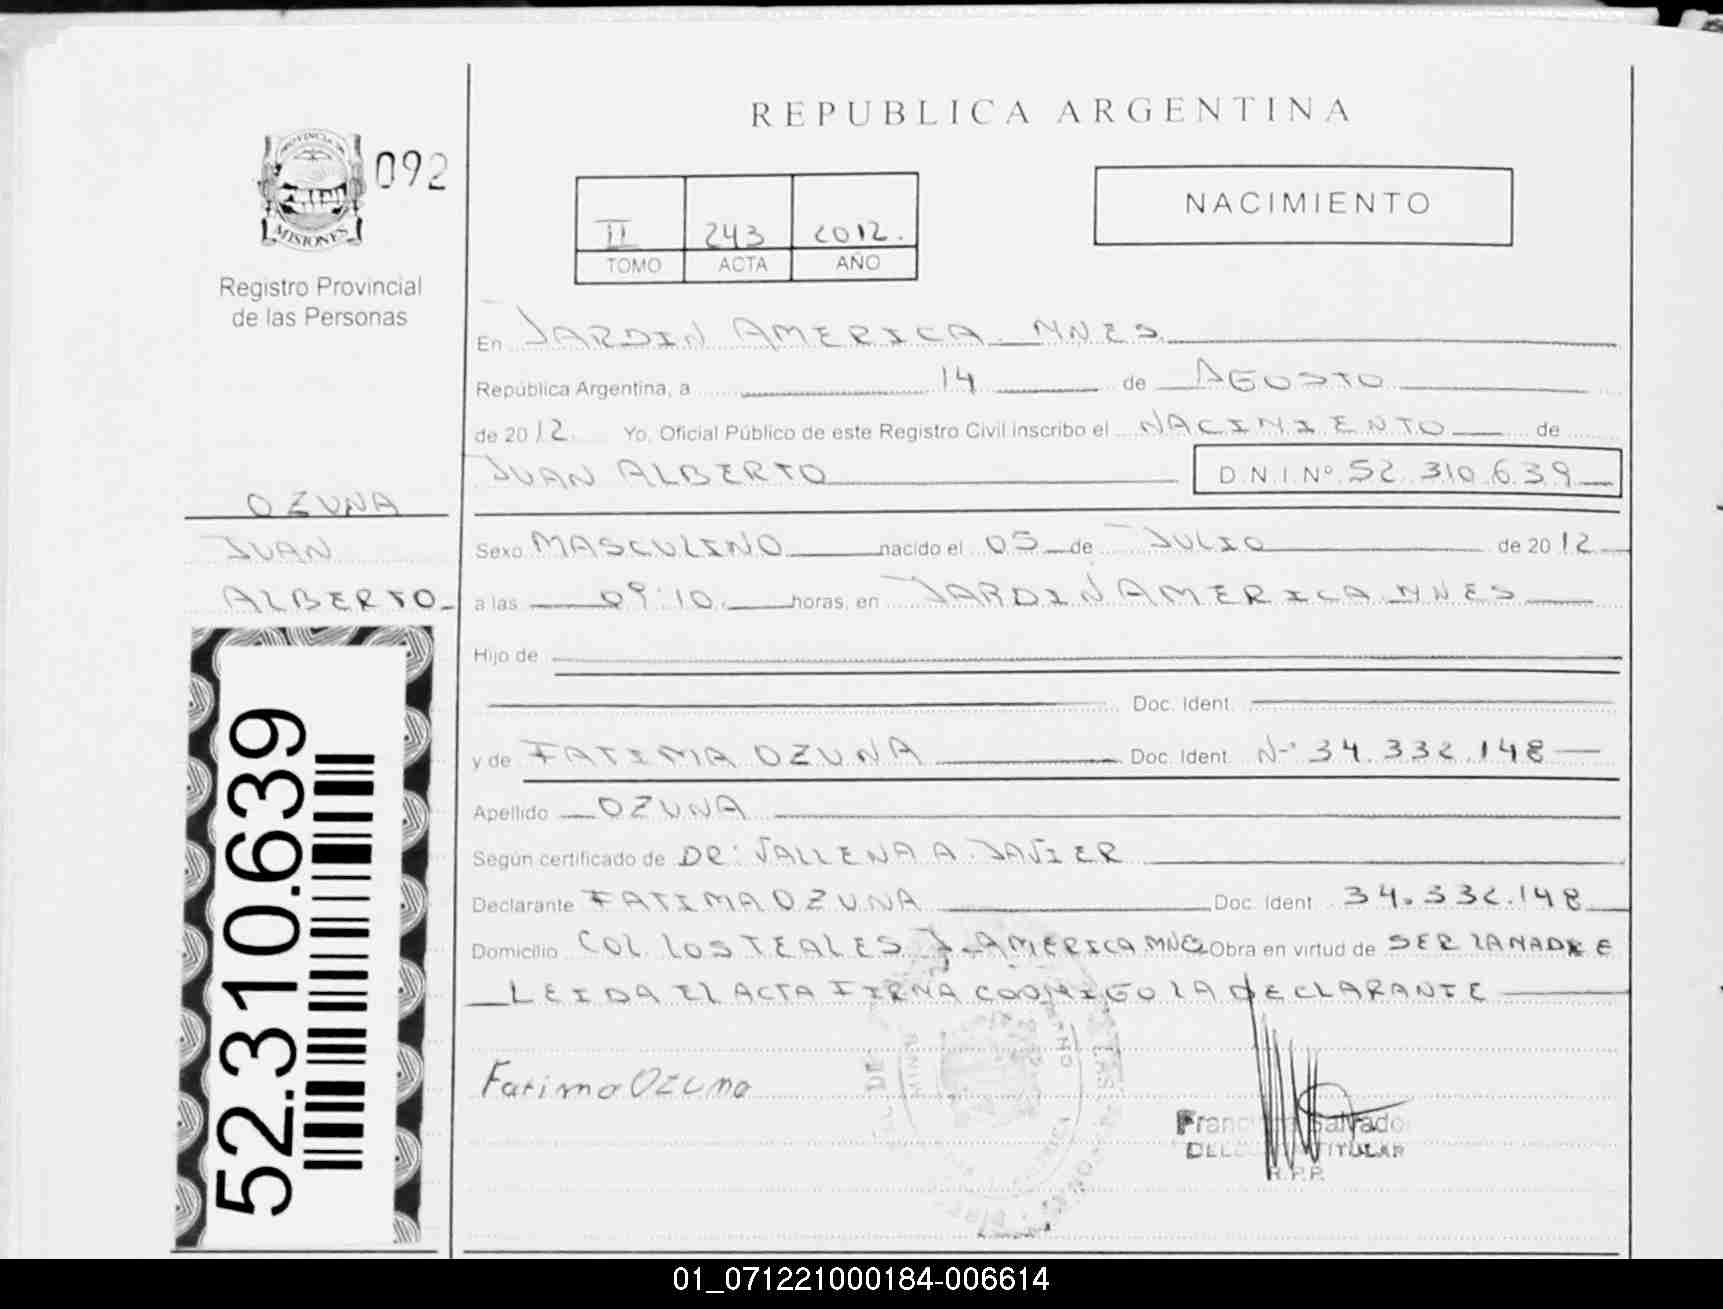 REPUBLICA ARGENTINA
PROVINCIA DE
MISIONES
092
Registro Provincial
de las Personas
II 243 2012.
TOMO ACTA AÑO
NACIMIENTO
En JARDIN AMERICA. MNES.
República Argentina, a 14 de AGOSTO
de 2012. Yo, Oficial Público de este Registro Civil inscribo el NACIMIENTO de
JUAN ALBERTO D.N.I.Nº 52.310.639
OZUNA
JUAN
ALBERTO
Sexo MASCULINO nacido el 05 de JULIO de 2012
a las 09:10 horas, en JARDIN AMERICA MNES
Hijo de
Doc. Ident.
y de FATIMA OZUNA Doc. Ident. Nº 34.332.148
Apellido OZUNA
Según certificado de DR: VALLENA A. JAVIER
Declarante FATIMA OZUNA Doc. Ident. 34.332.148
Domicilio COL. LOS TEALES J. AMERICA MNES Obra en virtud de SER LA MADRE
LEIDA EL ACTA FIRMA CONMIGO LA DECLARANTE
Fatima Ozuna
Salvado
TITULAR
R.P.P.
52.310.639
01_071221000184-006614